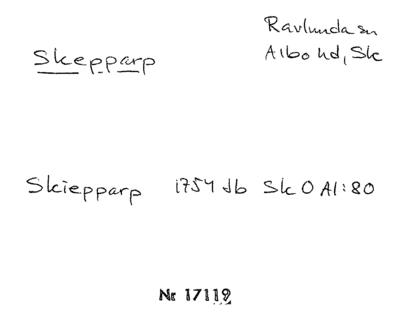 Skepparp
Ravlunda sn
Albo hd, Sk
Skiepparp 1754 Jb Sk O Al:80
Nr 17119